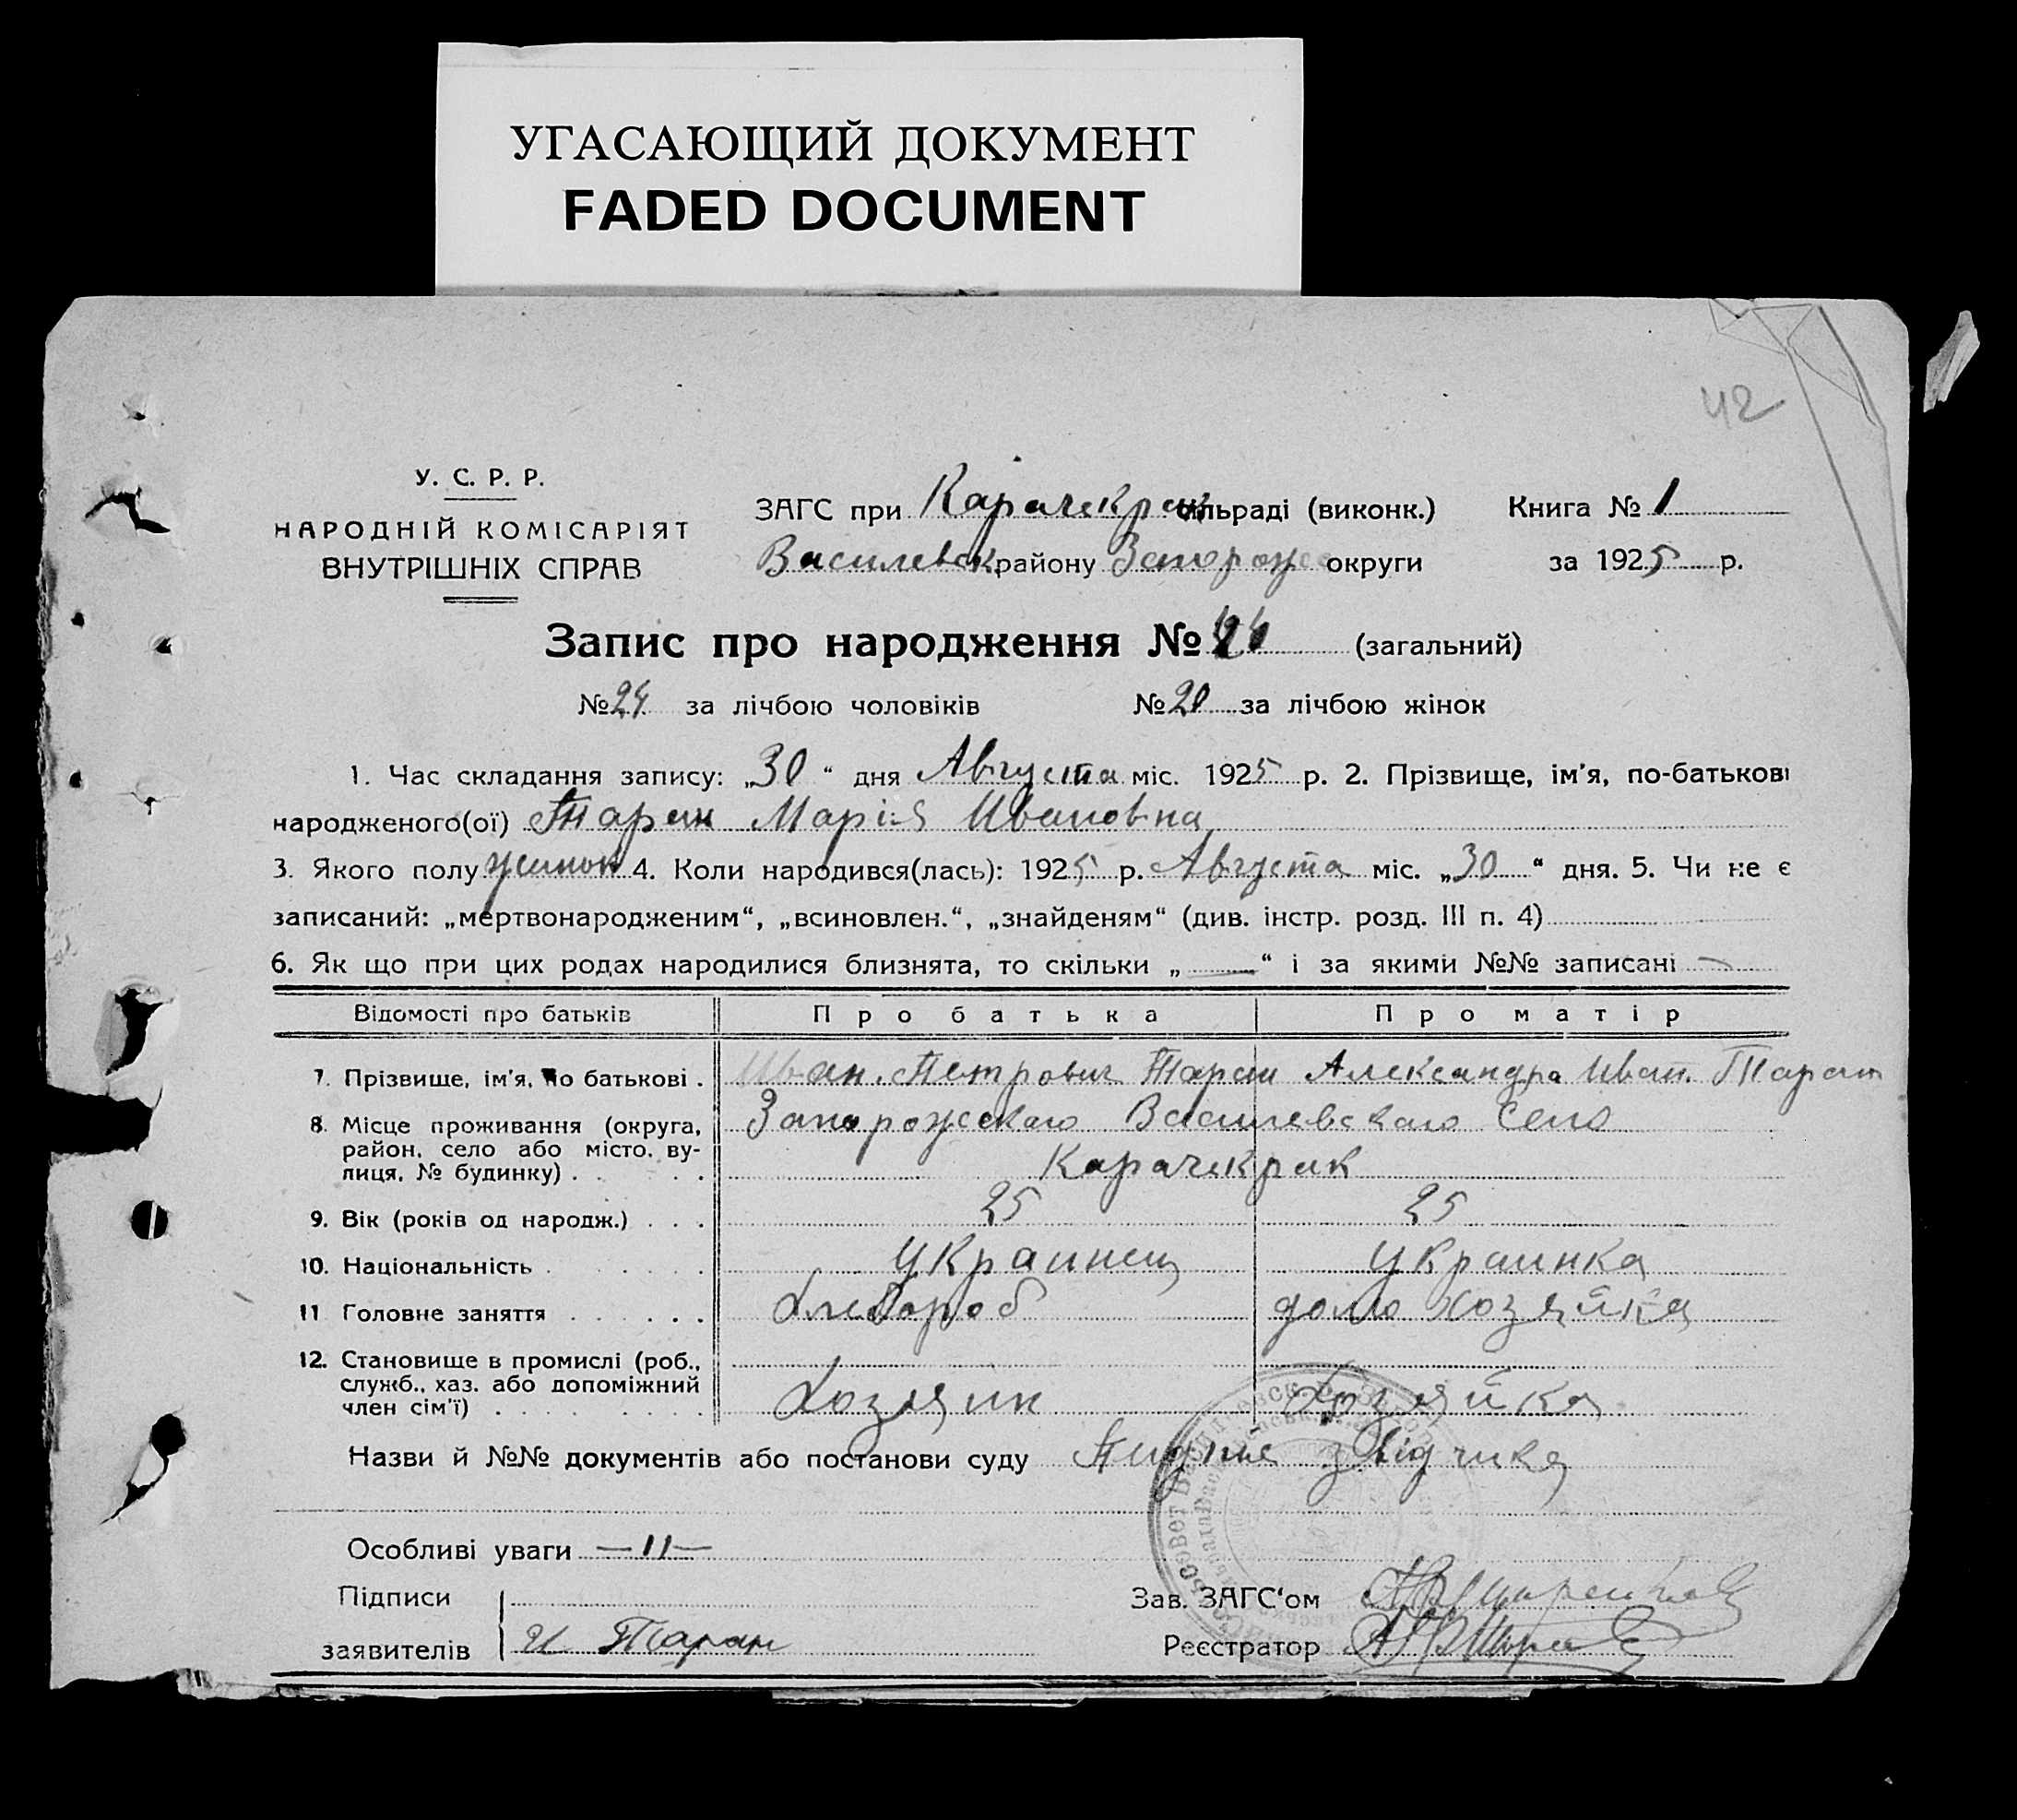 УГАСАЮЩИЙ ДОКУМЕНТ
FADED DOCUMENT
42
У. С. Р. Р.
НАРОДНІЙ КОМІСАРІЯТ
ВНУТРІШНІХ СПРАВ
ЗАГС при Карачекрак сільраді (виконк.) Книга № 1
Василевск району Запорож округи за 1925 р.
Запис про народження № (загальний)
№ 24 за лічбою чоловіків № 20 за лічбою жінок
1. Час складання запису: „30“ дня Августа міс. 1925 р. 2. Прізвище, ім'я, по-батькові
народженого(ої) Таран Марія Ивановна
3. Якого полу жинок 4. Коли народився(лась): 1925 р. Августа міс. „30“ дня. 5. Чи не є
записаний: „мертвонародженим“, „всиновлен.“, „знайденям“ (див. інстр. розд. III п. 4)
6. Як що при цих родах народилися близнята, то скільки „—“ і за якими №№ записані —
Відомості про батьків Про батька Про матір
7. Прізвище, ім'я, по батькові . Иван. Петрович Таран Александра Иван. Таран
8. Місце проживання (округа, Запорожскаго Василевскаго село
район, село або місто, ву-
лиця, № будинку) . . . . Карачекрак
9. Вік (років од народж.) . . . 25 25
10. Національність . . . . . Украинец Украинка
11 Головне заняття . . . . . . Хлебороб домо хозяйка
12. Становище в промислі (роб.,
служб., хаз. або допоміжний
член сім'ї) . . . . . . . Хозяин Хозяйка
Назви й №№ документів або постанови суду
Особливі уваги —11—
Підписи Зав. ЗАГС‘ом
заявителів И Таран Реєстратор